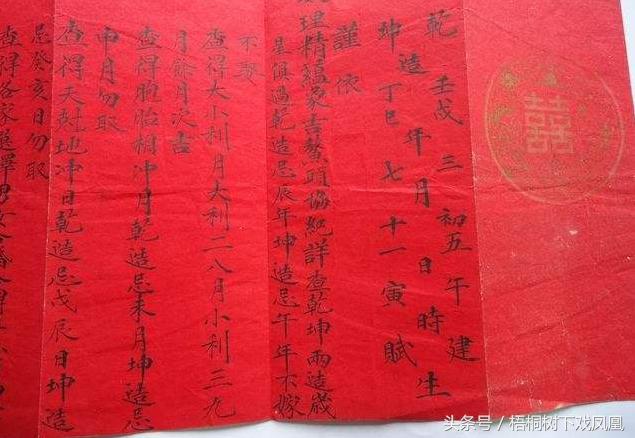 囍
乾壬戌三初五午建
造年月日時生
坤丁巳七十一寅賦
謹依
理精蘊象吉鰲頭協紀詳查乾坤兩造歲
星俱過乾造忌辰年坤造忌午年不嫁
不娶
查得大小利月大利二八月小利三九
月餘月次吉
查得胞胎相沖月乾造忌未月坤造忌
申月勿取
查得天尅地沖日乾造忌戊辰日坤造
忌癸亥日勿取
查得各家選擇男女合婚
头条号／梧桐树下戏凤凰